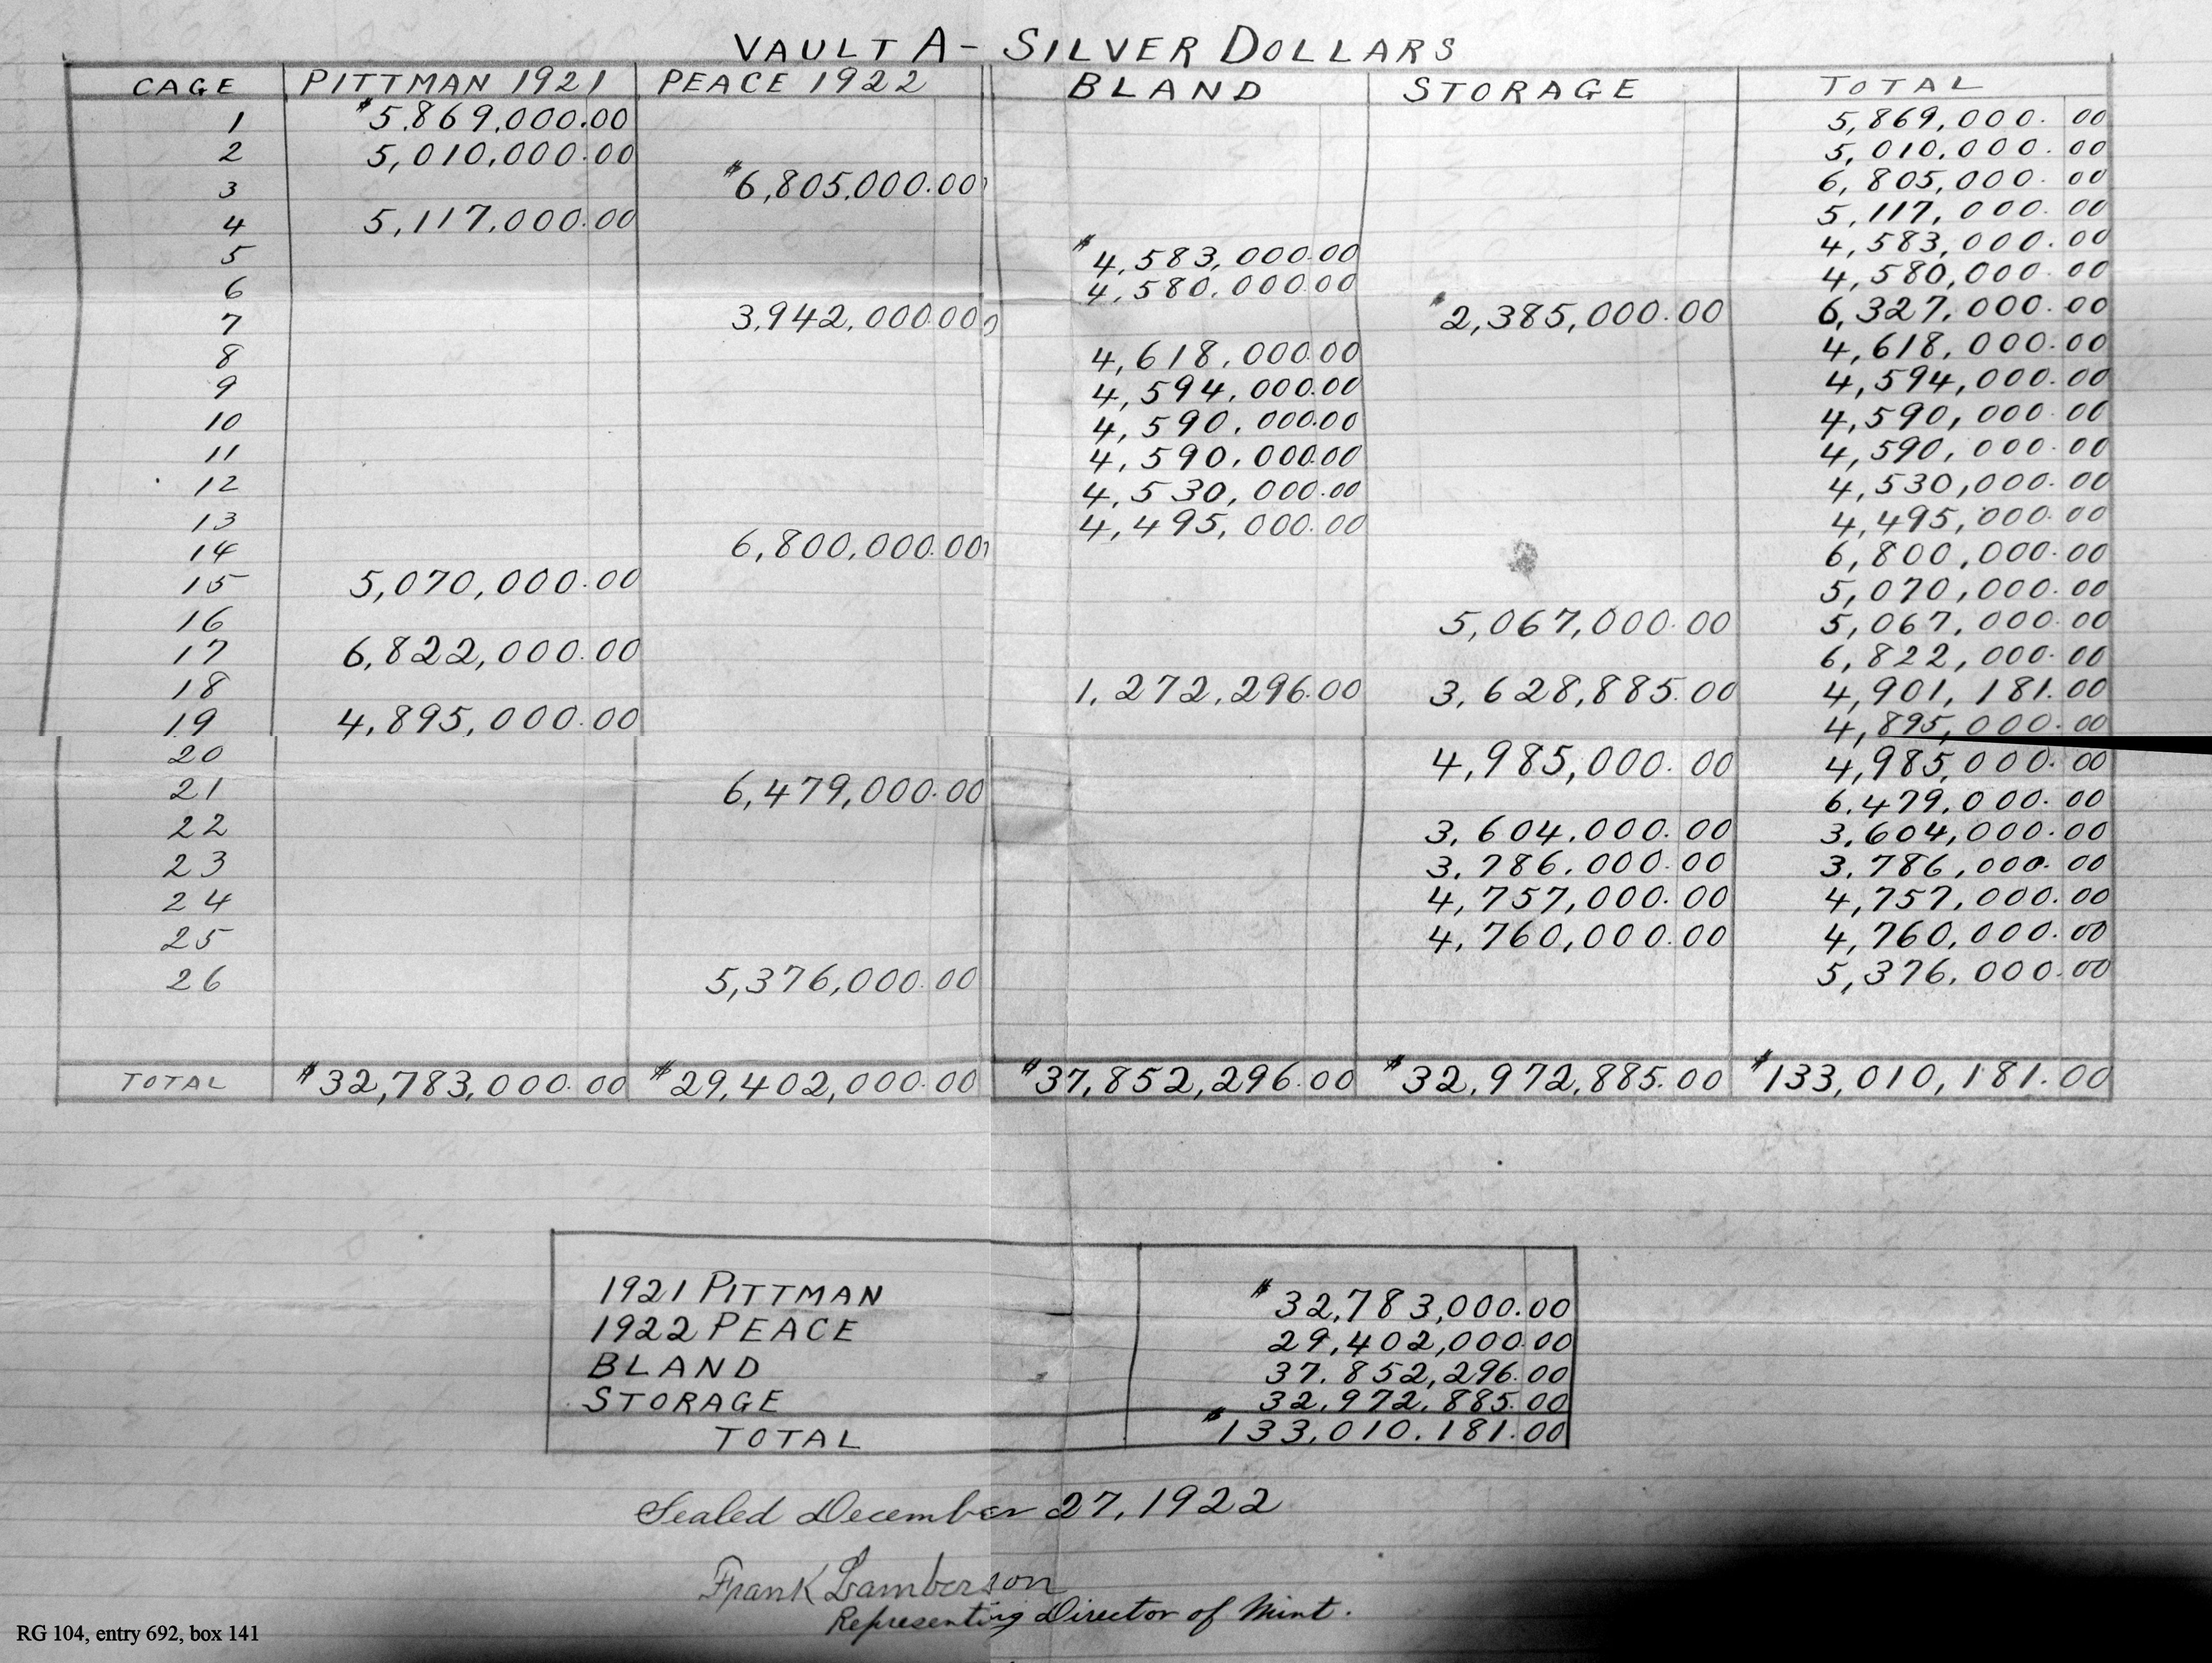 VAULT A- SILVER DOLLARS
CAGE PITTMAN 1921 PEACE 1922 BLAND STORAGE TOTAL
1 $5.869,000.00 5,869,000.00
2 5,010,000.00 5,010,000.00
3 $6,805,000.00 6,805,000.00
4 5,117,000.00 5,117,000.00
5 $4,583,000.00 4,583,000.00
6 4,580,000.00 4,580,000.00
7 3,942,000.00 $2,385,000.00 6,327,000.00
8 4,618,000.00 4,618,000.00
9 4,594,000.00 4,594,000.00
10 4,590,000.00 4,590,000.00
11 4,590,000.00 4,590,000.00
12 4,530,000.00 4,530,000.00
13 4,495,000.00 4,495,000.00
14 6,800,000.00 6,800,000.00
15 5,070,000.00 5,070,000.00
16 5,067,000.00 5,067,000.00
17 6,822,000.00 6,822,000.00
18 1,272,296.00 3,628,885.00 4,901,181.00
19 4,895,000.00 4,895,000.00
20 4,985,000.00 4,985,000.00
21 6,479,000.00 6.479,000.00
22 3,604,000.00 3,604,000.00
23 3,786,000.00 3,786,000.00
24 4,757,000.00 4,757,000.00
25 4,760,000.00 4,760,000.00
26 5,376,000.00 5,376,000.00
TOTAL $32,783,000.00 $29,402,000.00 $37,852,296.00 $32,972,885.00 $133,010,181.00
1921 PITTMAN $32,783,000.00
1922 PEACE 29,402,000.00
BLAND 37.852,296.00
STORAGE 32,972,885.00
TOTAL $133,010.181.00
Sealed December 27, 1922
Frank Lamberson
Representing Director of Mint.
RG 104, entry 692, box 141